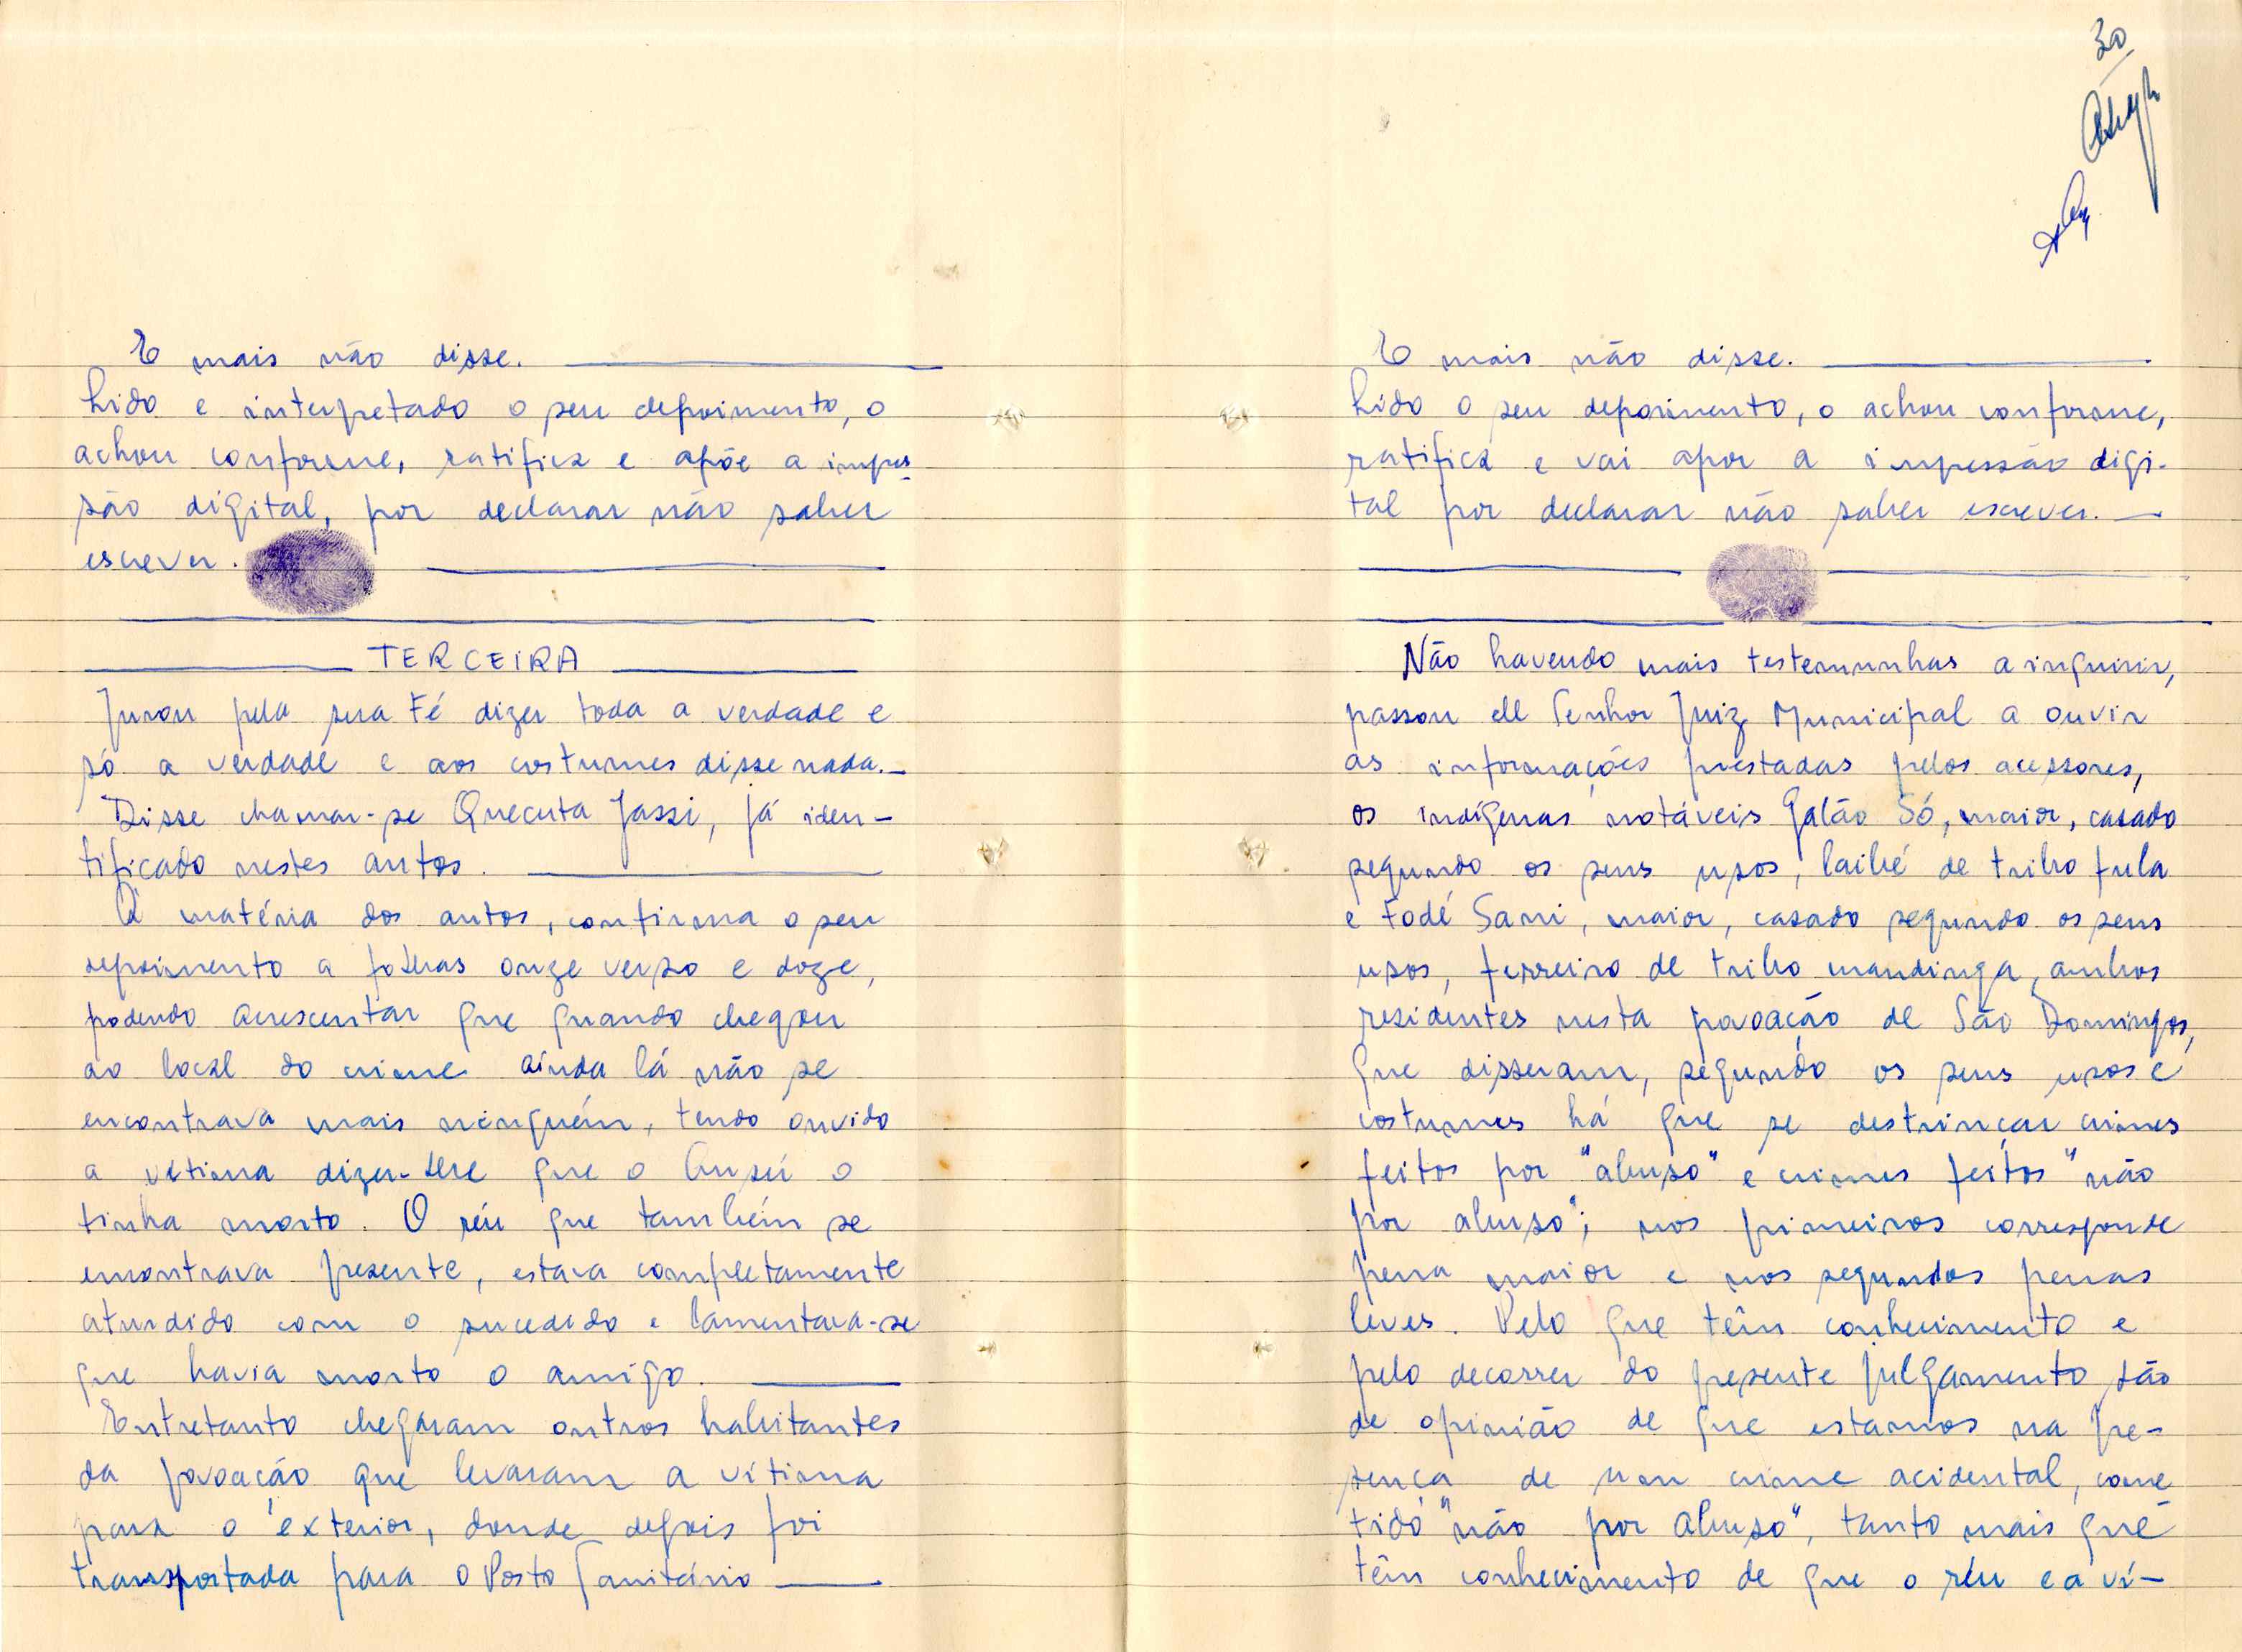 E mais não disse.
Lido e interpretado o seu depoimento, o
achou conforme, ratifica e apõe a impres
são digital, por declarar não saber
escrever.
TERCEIRA
Jurou pela sua Fé dizer toda a verdade e
só a verdade e aos costumes disse nada.
Disse chamar-se Quecuta Jassi, já iden-
tificado nestes autos.
À matéria dos autos, confirma o seu
depoimento a folhas onze verso e doze,
podendo acrescentar que quando chegou
ao local do crime ainda lá não se
encontrava mais ninguém, tendo ouvido
a vítima dizer-lhe que o Ansú o
tinha morto. O réu que também se
encontrava presente, estava completamente
aturdido com o sucedido e lamentava-se
que havia morto o amigo.
Entretanto chegaram outros habitantes
da povoação que levaram a vítima
para o exterior, donde depois foi
transportada para o Posto Sanitário
30
E mais não disse.
Lido o seu depoimento, o achou conforme,
ratifica e vai apor a impressão digi-
tal por declarar não saber escrever.
Não havendo mais testemunhas a inquirir,
passou ele Senhor Juiz Municipal a ouvir
as informações prestadas pelos acessores,
os indígenas notáveis Galão Só, maior, casado
segundo os seus usos, laibé de tribo fula
e Fodé Sani, maior, casado segundo os seus
usos, ferreiro de tribo mandinga, ambos
residentes nesta povoação de São Domingos,
que disseram, segundo os seus usos e
costumes há que se destrinçar crimes
feitos por "abuso" e crimes feitos "não
por abuso"; nos primeiros corresponde
pena maior e nos segundos penas
leves. Pelo que têm conhecimento e
pelo decorrer do presente julgamento são
de opinião de que estamos na pre-
sença de um crime acidental, come
tido "não por abuso", tanto mais que
têm conhecimento de que o réu e a ví-